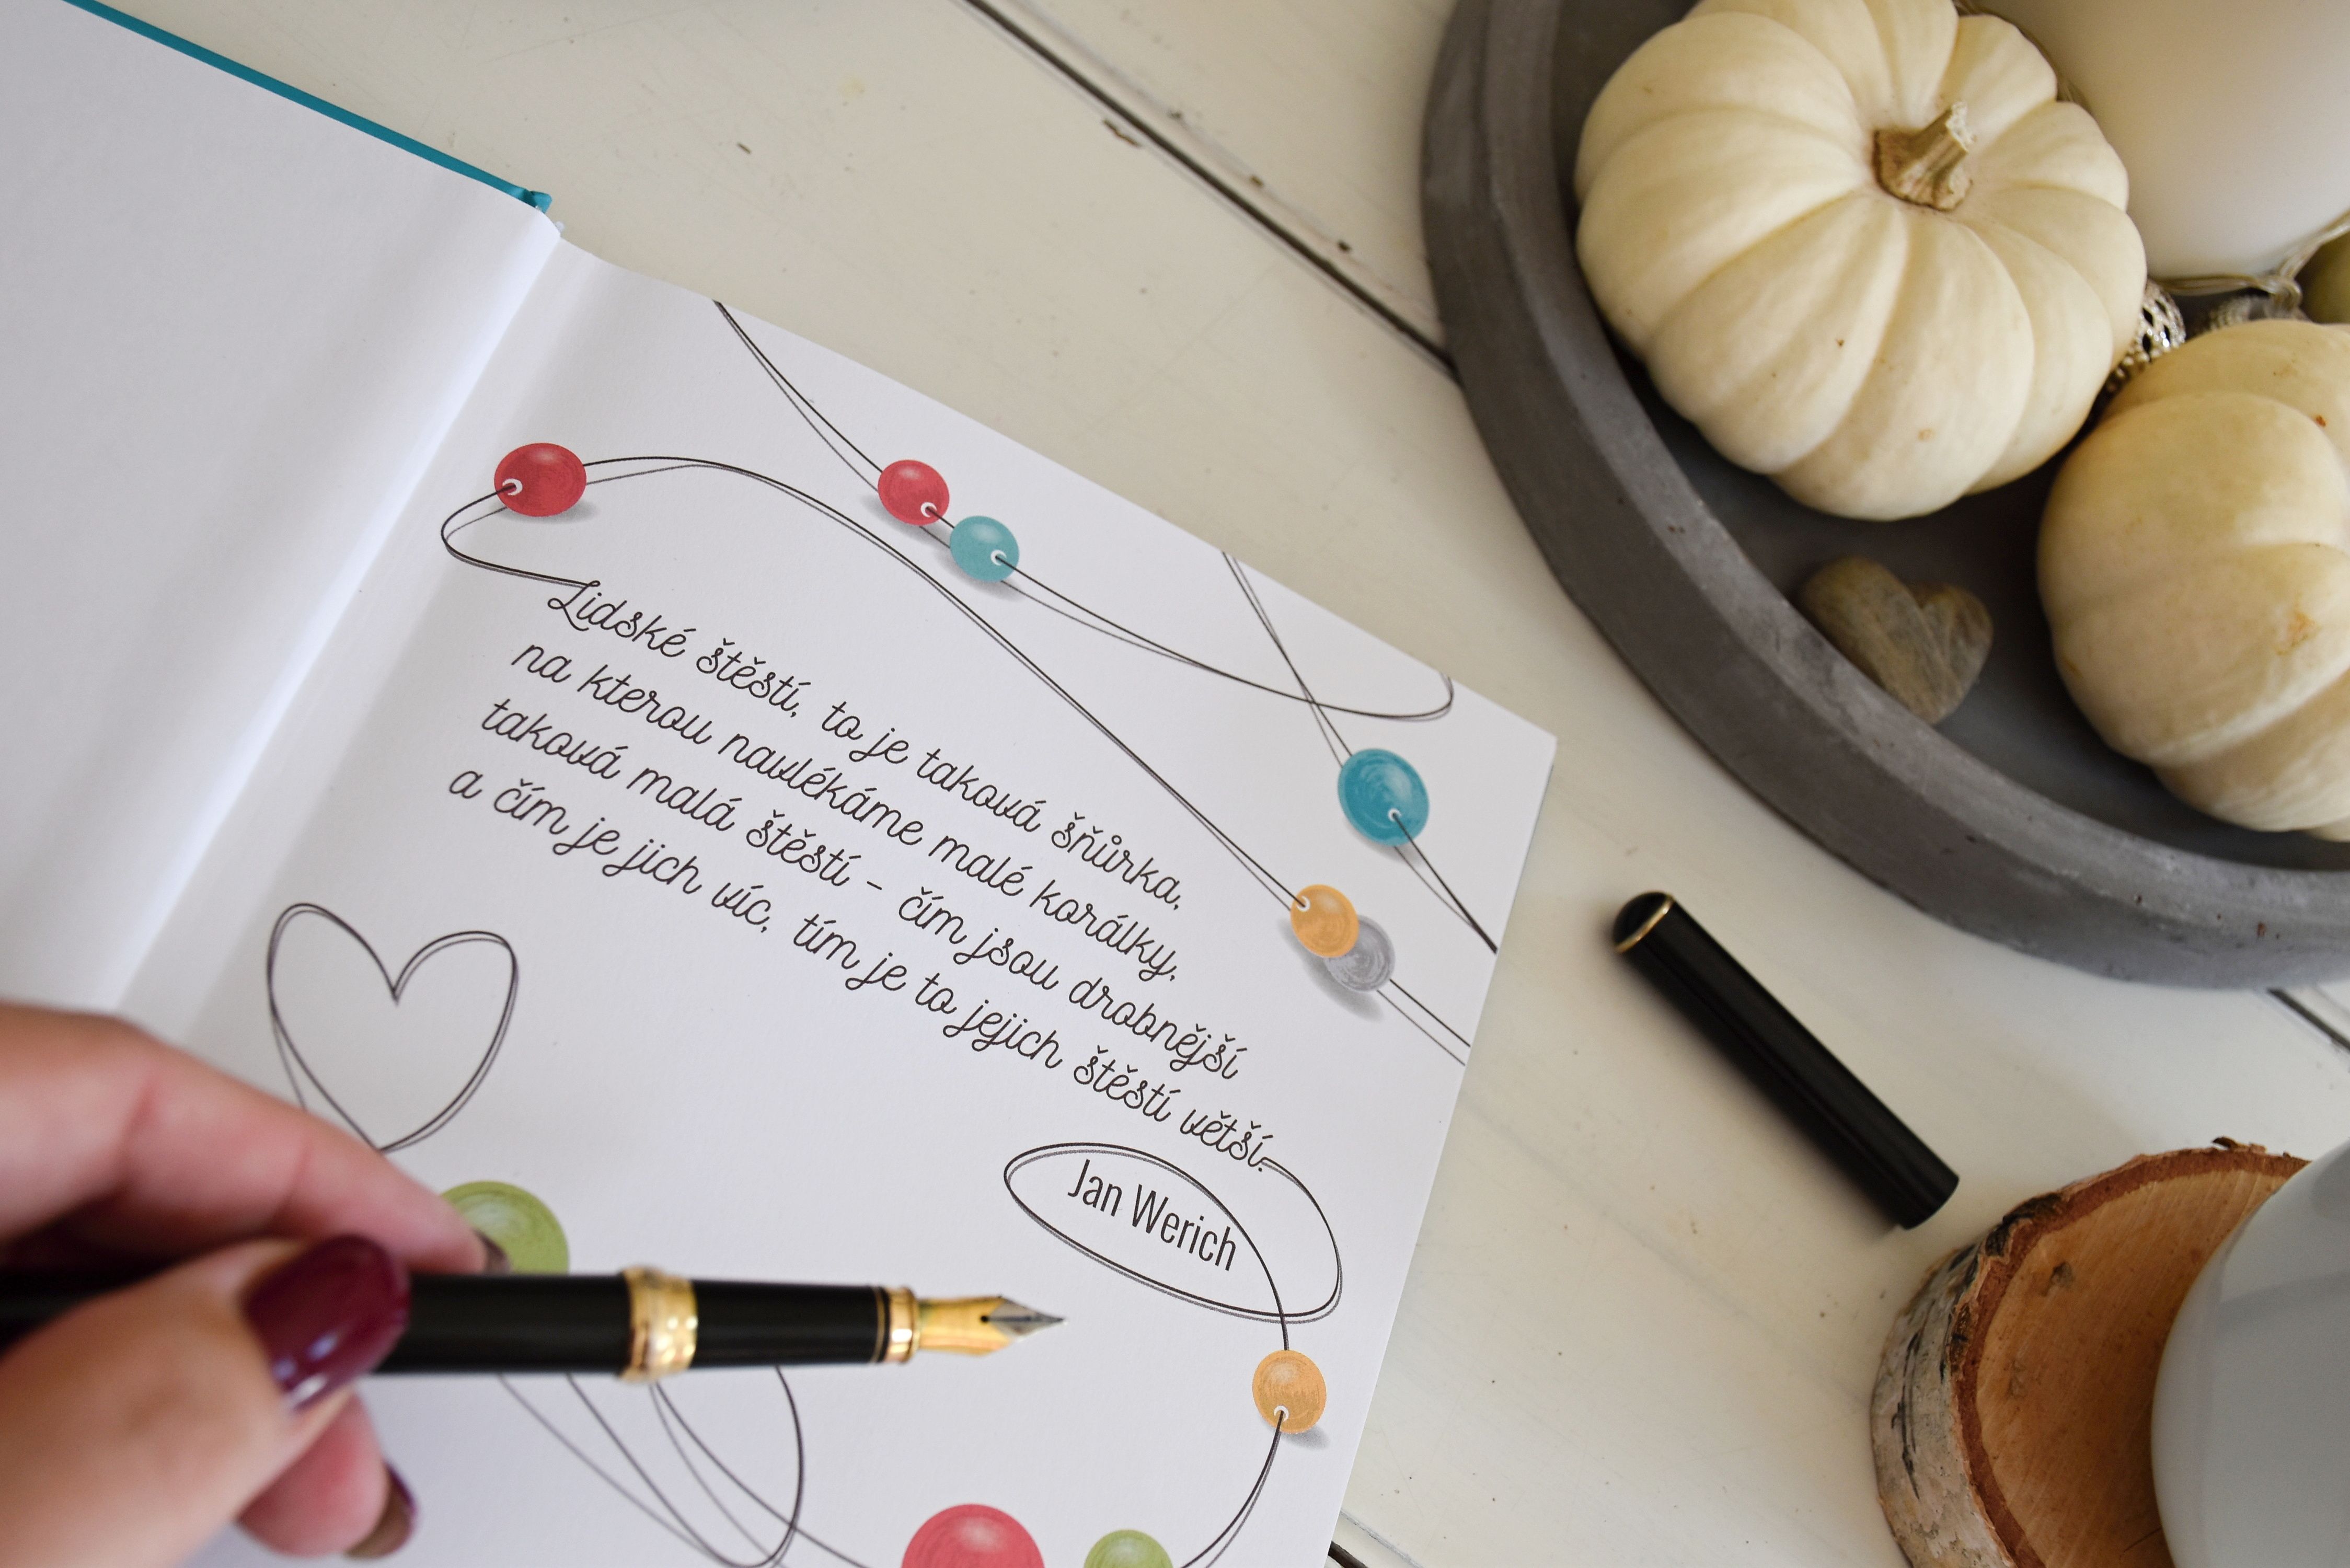 Lidské štěstí, to je taková šňůrka,
na kterou navlékáme malé korálky,
taková malá štěstí - čím jsou drobnější
a čím je jich víc, tím je to jejich štěstí větší.
Jan Werich